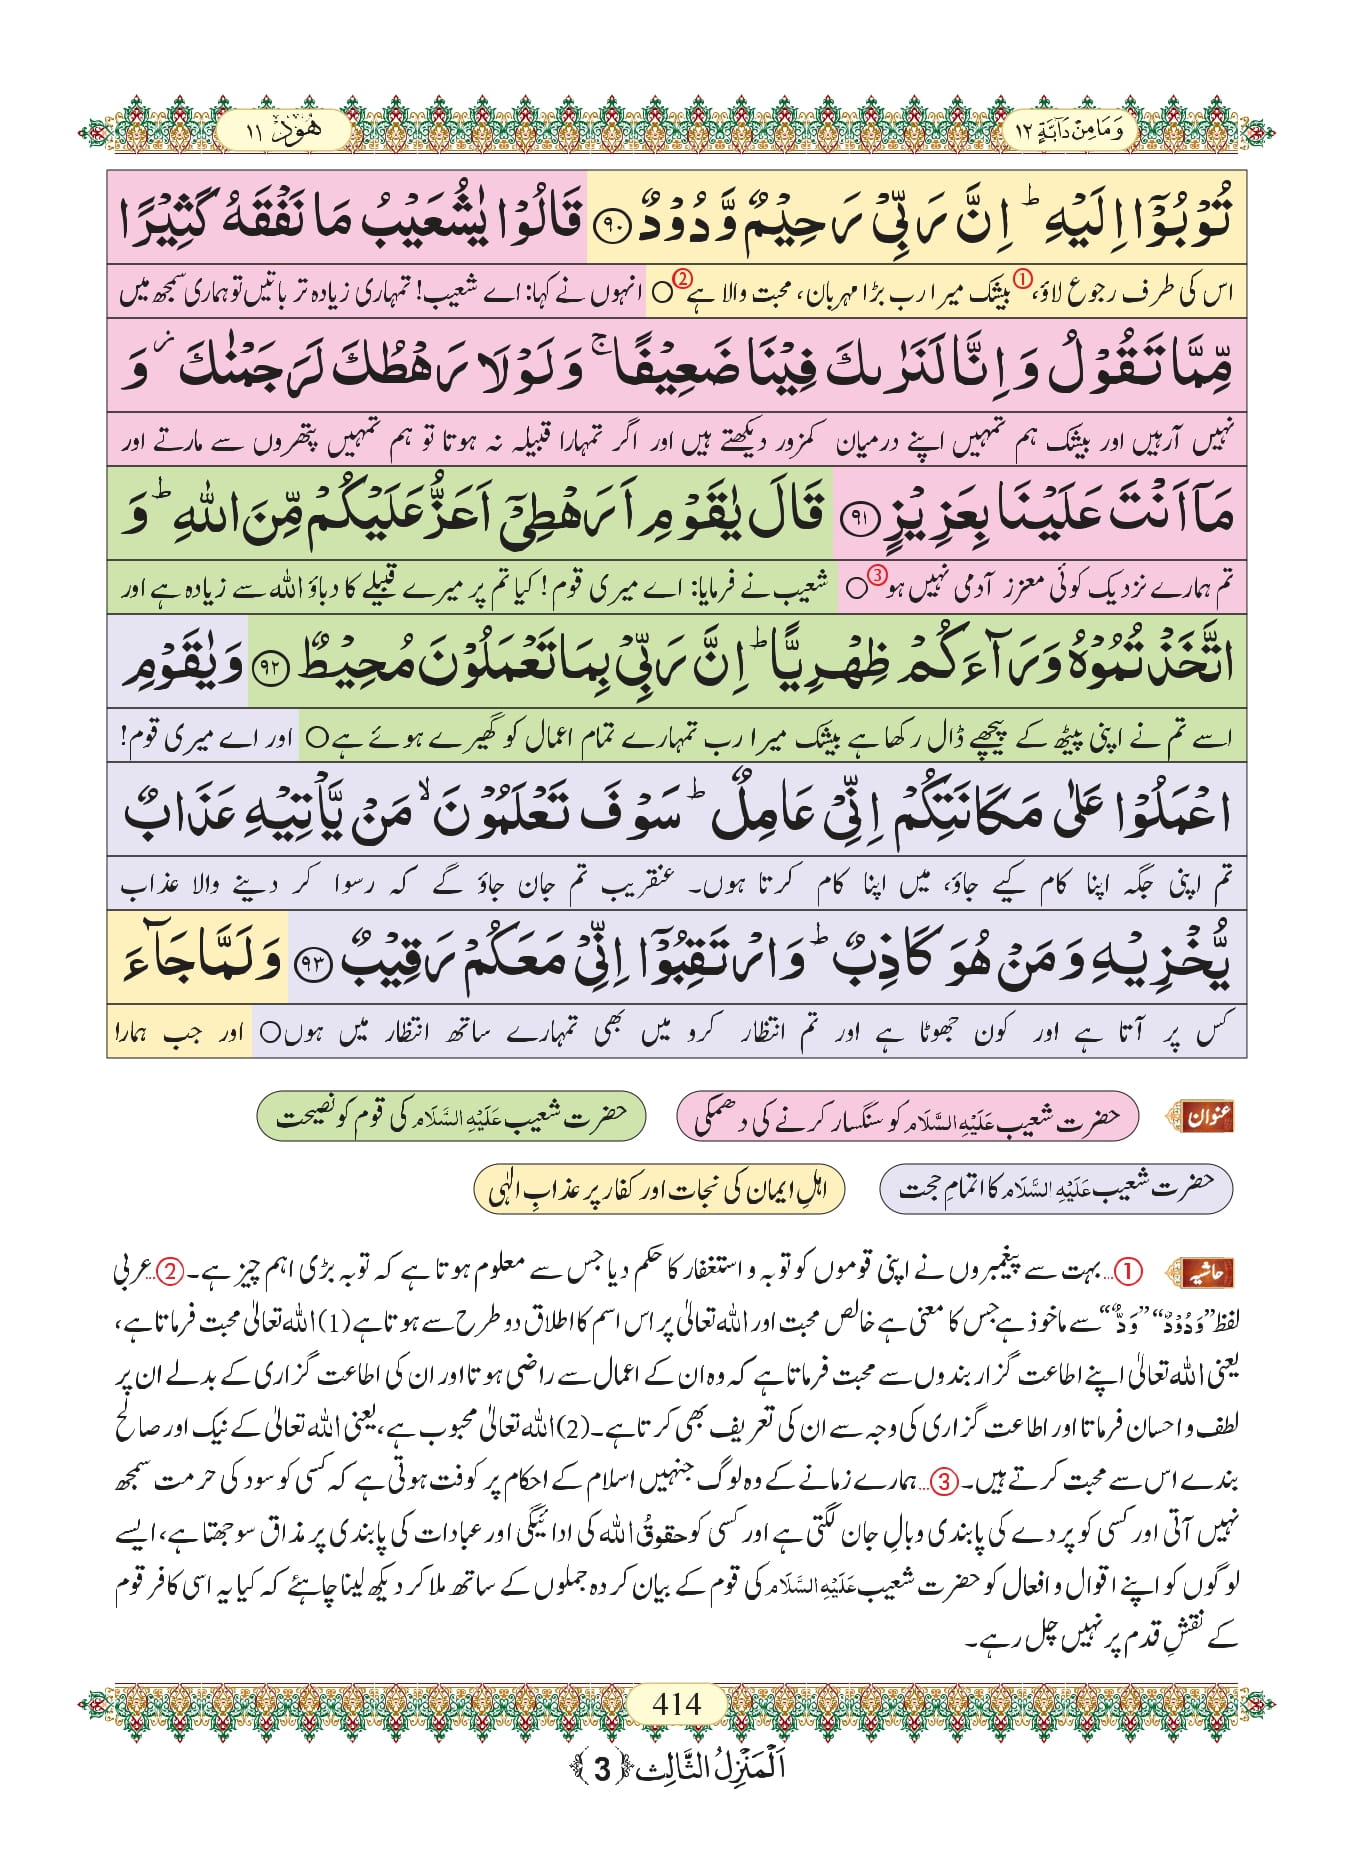 وَمَا مِنْ دَآبَّةٍ ١٢
هُوْد ١١
تُوْبُوْۤا اِلَیْهِؕ اِنَّ رَبِّیْ رَحِیْمٌ وَّدُوْدٌ ﴿۹۰﴾ قَالُوْا یٰشُعَیْبُ مَا نَفْقَهُ كَثِیْرًا
اس کی طرف رجوع لاؤ، ① بیشک میرا رب بڑا مہربان، محبت والا ہے ② ○ انہوں نے کہا: اے شعیب! تمہاری زیادہ تر باتیں تو ہماری سمجھ میں
مِّمَّا تَقُوْلُ وَ اِنَّا لَنَرٰىكَ فِیْنَا ضَعِیْفًاۚ وَ لَوْ لَا رَهْطُكَ لَرَجَمْنٰكَ٘ وَ
نہیں آرہیں اور بیشک ہم تمہیں اپنے درمیان کمزور دیکھتے ہیں اور اگر تمہارا قبیلہ نہ ہوتا تو ہم تمہیں پتھروں سے مارتے اور
مَاۤ اَنْتَ عَلَیْنَا بِعَزِیْزٍ ﴿۹۱﴾ قَالَ یٰقَوْمِ اَرَهْطِیْۤ اَعَزُّ عَلَیْكُمْ مِّنَ اللّٰهِؕ وَ
تم ہمارے نزدیک کوئی معزز آدمی نہیں ہو ③ ○ شعیب نے فرمایا: اے میری قوم! کیا تم پر میرے قبیلے کا دباؤ اللہ سے زیادہ ہے اور
اتَّخَذْتُمُوْهُ وَرَآءَكُمْ ظِهْرِیًّاؕ اِنَّ رَبِّیْ بِمَا تَعْمَلُوْنَ مُحِیْطٌ ﴿۹۲﴾ وَ یٰقَوْمِ
اسے تم نے اپنی پیٹھ کے پیچھے ڈال رکھا ہے بیشک میرا رب تمہارے تمام اعمال کو گھیرے ہوئے ہے ○ اور اے میری قوم!
اعْمَلُوْا عَلٰى مَكَانَتِكُمْ اِنِّیْ عَامِلٌؕ سَوْفَ تَعْلَمُوْنَۙ مَنْ یَّاْتِیْهِ عَذَابٌ
تم اپنی جگہ اپنا کام کیے جاؤ، میں اپنا کام کرتا ہوں۔ عنقریب تم جان جاؤ گے کہ رسوا کر دینے والا عذاب
یُّخْزِیْهِ وَ مَنْ هُوَ كَاذِبٌؕ وَ ارْتَقِبُوْۤا اِنِّیْ مَعَكُمْ رَقِیْبٌ ﴿۹۳﴾ وَ لَمَّا جَآءَ
کس پر آتا ہے اور کون جھوٹا ہے اور تم انتظار کرو میں بھی تمہارے ساتھ انتظار میں ہوں ○ اور جب ہمارا
عنوان حضرت شعیب عَلَیْہِ السَّلَام کو سنگسار کرنے کی دھمکی حضرت شعیب عَلَیْہِ السَّلَام کی قوم کو نصیحت
حضرت شعیب عَلَیْہِ السَّلَام کا اتمامِ حجت اہلِ ایمان کی نجات اور کفار پر عذابِ الٰہی
حاشیہ ①... بہت سے پیغمبروں نے اپنی قوموں کو توبہ و استغفار کا حکم دیا جس سے معلوم ہوتا ہے کہ توبہ بڑی اہم چیز ہے۔ ②... عربی
لفظ ”وَدُوْدٌ“ ”وَدٌّ“ سے ماخوذ ہے جس کا معنی ہے خالص محبت اور اللہ تعالیٰ پر اس اسم کا اطلاق دو طرح سے ہوتا ہے (1) اللہ تعالیٰ محبت فرماتا ہے،
یعنی اللہ تعالیٰ اپنے اطاعت گزار بندوں سے محبت فرماتا ہے کہ وہ ان کے اعمال سے راضی ہوتا اور ان کی اطاعت گزاری کے بدلے ان پر
لطف و احسان فرماتا اور اطاعت گزاری کی وجہ سے ان کی تعریف بھی کرتا ہے۔ (2) اللہ تعالیٰ محبوب ہے، یعنی اللہ تعالیٰ کے نیک اور صالح
بندے اس سے محبت کرتے ہیں۔ ③... ہمارے زمانے کے وہ لوگ جنہیں اسلام کے احکام پر کوفت ہوتی ہے کہ کسی کو سود کی حرمت سمجھ
نہیں آتی اور کسی کو پردے کی پابندی وبالِ جان لگتی ہے اور کسی کو حقوقُ اللہ کی ادائیگی اور عبادات کی پابندی پر مذاق سوجھتا ہے، ایسے
لوگوں کو اپنے اقوال و افعال کو حضرت شعیب عَلَیْہِ السَّلَام کی قوم کے بیان کردہ جملوں کے ساتھ ملا کر دیکھ لینا چاہئے کہ کیا یہ اسی کافر قوم
کے نقشِ قدم پر نہیں چل رہے۔
414
اَلْمَنْزِلُ الثَّالِث ﴿3﴾